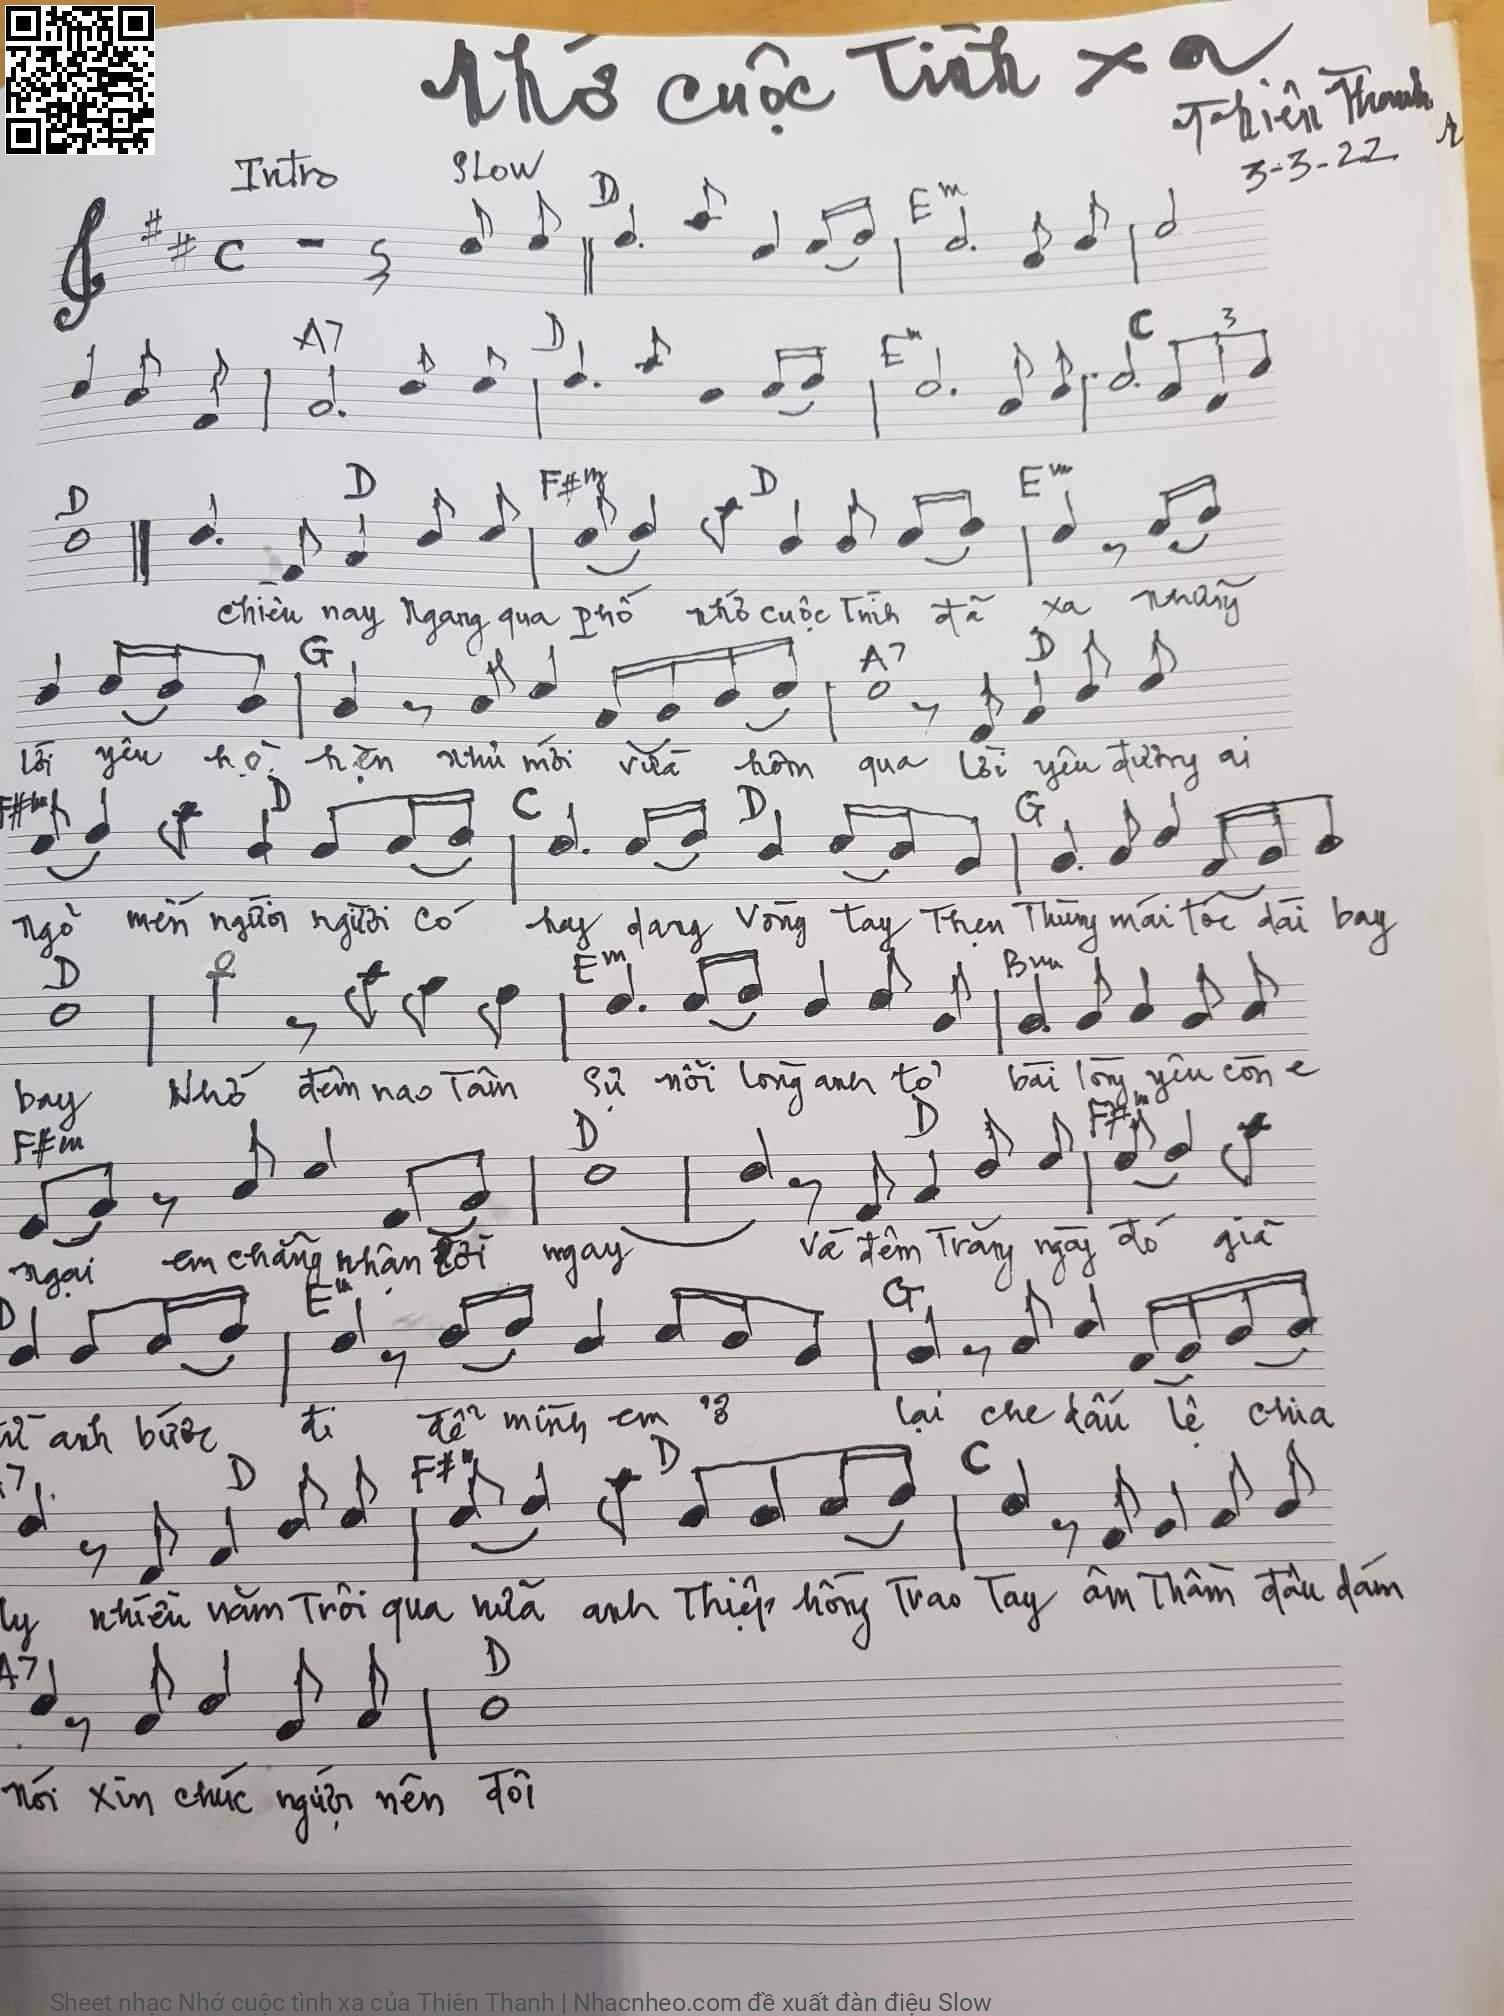 Nhớ cuộc Tình xa
Thiên Thanh
3-3-22
Intro SLOW D Em
C
A7 D Em C 3
D D F#m D Em
chiều nay Ngang qua phố nhớ cuộc Tình đã xa những
G A7 D
lời yêu hẹn như mới vừa hôm qua Lời yêu đường ai
F#m D C D G
ngỏ mến người người có hay dang Vòng tay Thẹn Thùng mái tóc dài bay
D Em Bm
bay Nhớ đêm nao Tâm Sự nỗi lòng anh tỏ bài lòng yêu còn e
F#m D D F#m
ngại em chẳng nhận lời ngay Và đêm Trăng ngày đó giã
D Em G
từ anh bước đi để mình em ở lại che dấu lệ chia
A7 D F#m D C
ly nhiều năm Trôi qua nữa anh Thiệp hồng Trao Tay âm Thầm đâu dám
A7 D
nói xin chúc người nên đôi
Sheet nhạc Nhớ cuộc tình xa của Thiên Thanh | Nhacnheo.com đề xuất đàn điệu Slow